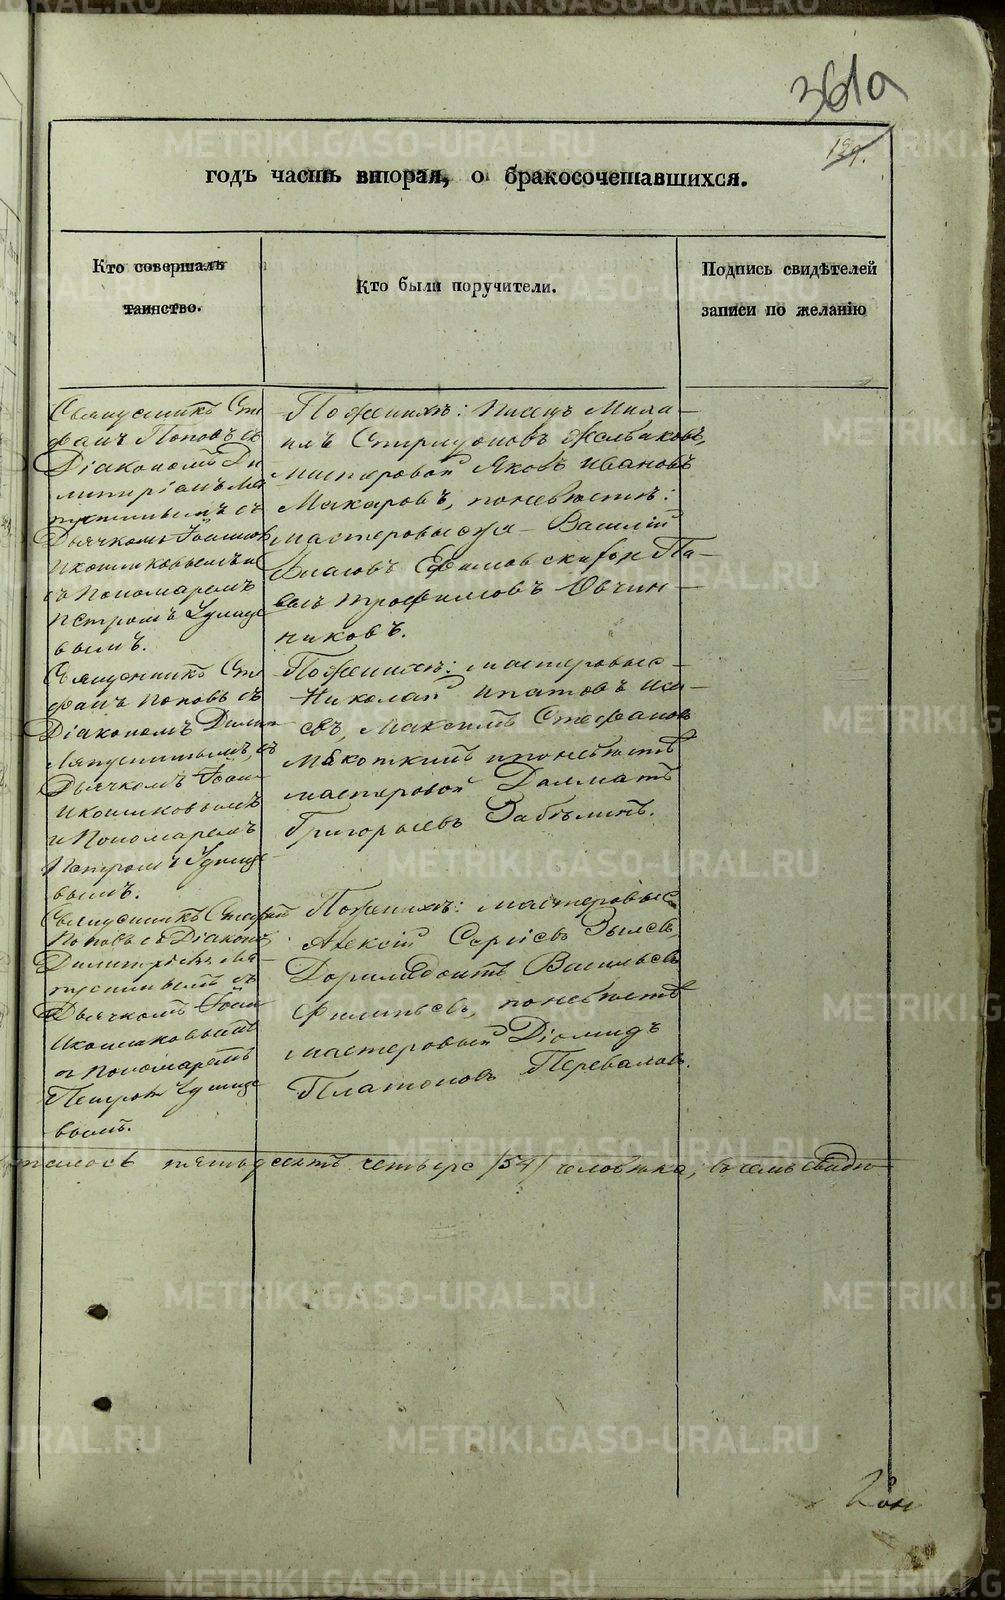 361а
129.
годъ часть вторая, о бракосочетавшихся.
Кто совершалъ
таинство.
Кто были поручители.
Подпись свидѣтелей
записи по желанію
Священникъ Сте
фанъ Поповъ съ
Діакономъ Ди
митріемъ
съ
Дьячкомъ Іоанном
Иконниковымъ и
съ Пономаремъ
Петромъ
вымъ.
По женихѣ: писецъ Миха-
илъ Спиридоновъ
мастеровой Яковъ Ивановъ
Макаровъ, по невѣстѣ:
мастеровые Василій
Власовъ Павелъ Трофимовъ Овчин-
никовъ.
Священникъ Сте
фанъ Поповъ съ
Діакономъ Дими
съ
Дьячкомъ Іоан
Иконниковымъ
и Пономаремъ
Петромъ
вымъ.
По женихѣ: мастеровые
Николай Ипатовъ Иса-
евъ, Максимъ Стефановъ
и по невѣстѣ
мастеровой Далматъ
Григорьевъ Забѣлинъ.
Священникъ Стефан
Поповъ съ Діакон
Димитріемъ
съ
Дьячкомъ Іоан
Иконниковымъ
и Пономаремъ
Петром
вымъ.
По женихѣ: мастеровые
Алексій Сергіевъ Зыевъ,
Доримедонтъ Васильевъ
Филипьевъ, по невѣстѣ
мастеровый Діомидъ
Платоновъ Перевалов.
пятьдесятъ четыре /54/ человѣка, въ чемъ свидѣ
METRIKI.GASO-URAL.RU